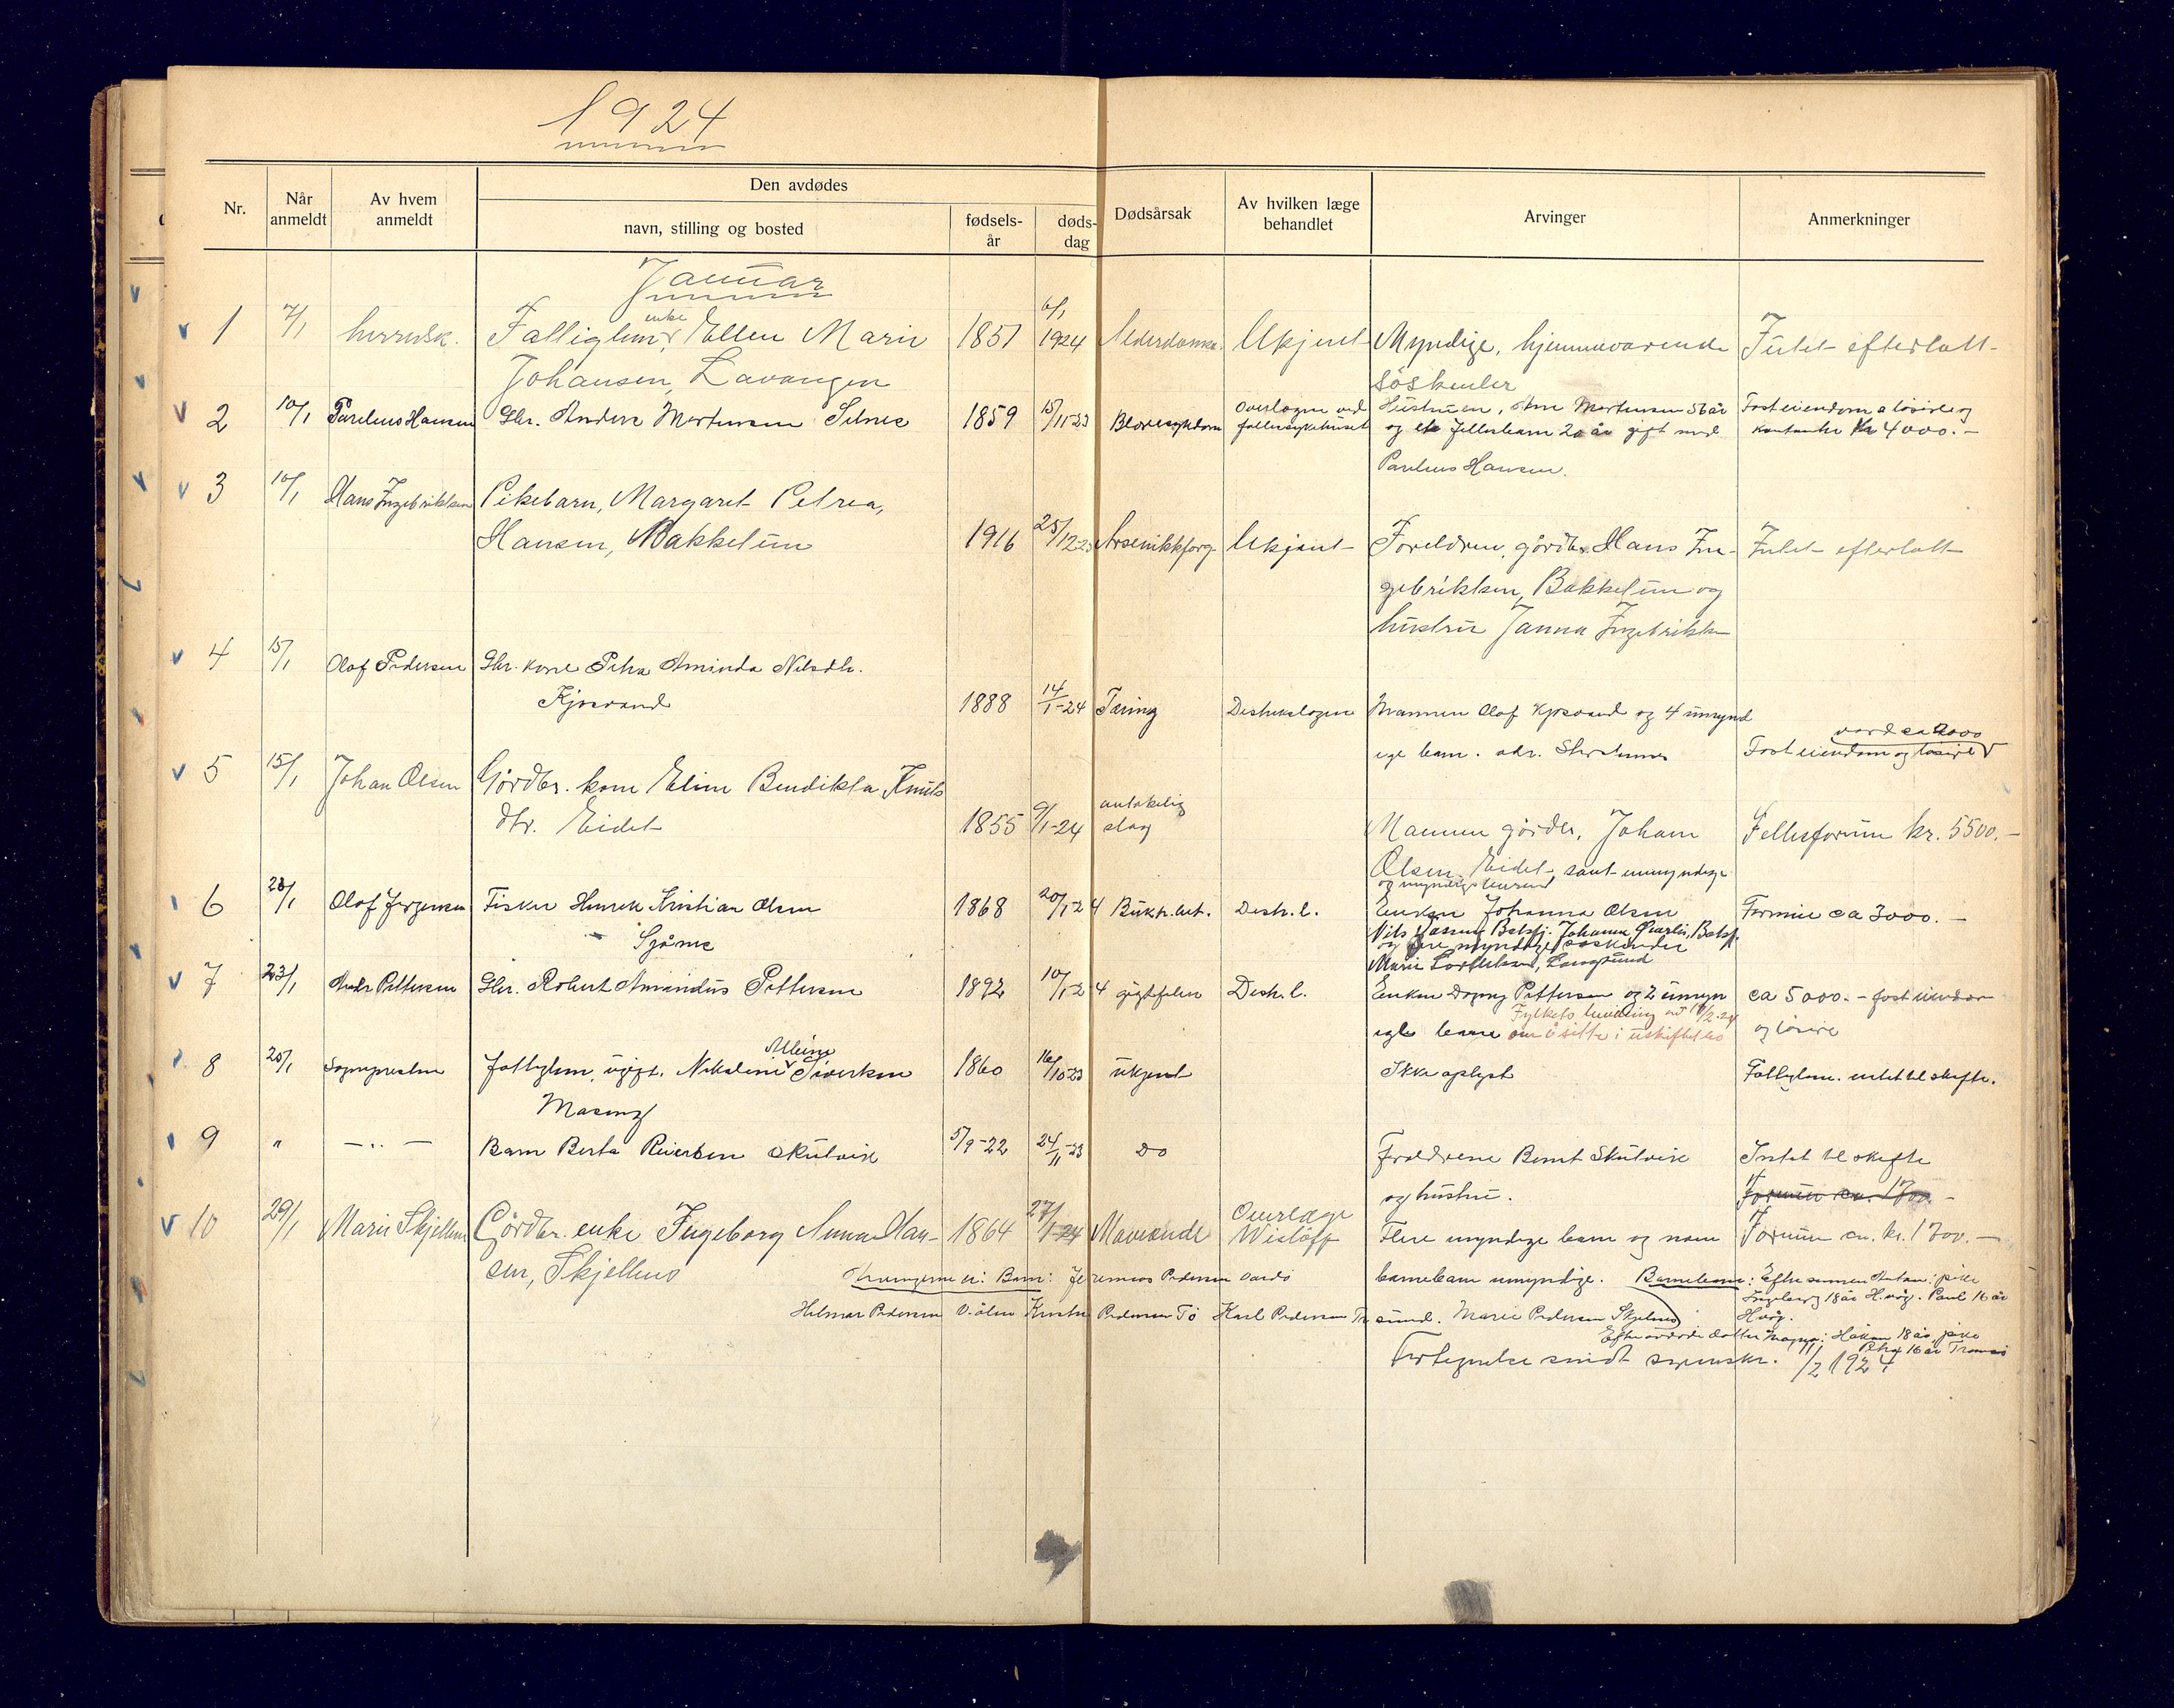 1924
Nr.
Når anmeldt
Av hvem anmeldt
Den avdødes
navn, stilling og bosted
fødsels-år
døds-dag
Dødsårsak
Av hvilken læge behandlet
Arvinger
Anmerkninger
Januar
1 7/1 herredsk. Fattiglem, enke Ellen Marie 1851 6/1 1924 Alderdomss. Ukjent Myndige, hjemmeværende Intet efterlatt
Johansen, Lavangen søskender
2 10/1 Paulus Hansen Gbr. Anders Mortensen Selnes 1859 15/11-23 Blæresykdom Overlægen ved Hustruen, Ane Mortensen 56 år Fast eiendom, løsøre og
fellessykehuset og et fellesbarn 20 år gift med kontanter kr 4000.-
Paulus Hansen.
3 10/1 Hans Ingebriktsen Pikebarn, Margaret Petrea,
Hansen, Bakketun 1916 25/12-23 Arsenikkforg. Ukjent Foreldren, gårdbr. Hans In- Intet efterlatt
gebriktsen, Bakketun og
hustru Janna Ingebrikts
4 15/1 Olaf Pedersen Gbr. kone Petra Aminda Nilsdtr.
Kjosvand 1888 14/1-24 Tæring Distriktslægen Mannen Olaf Kjosvand og 4 umynd
ige barn. adr. Fast eiendom og løsøre
verd ca 2000
5 15/1 Johan Olsen Gårdbr. kone Eline Bendikta Knuts
dtr. Eidet 1855 9/1-24 antakelig slag Mannen gårdbr. Johan Fellesformue kr. 5500.-
Olsen, Eidet, samt umyndige
og myndige
6 23/1 Olaf Jørgensen Fisker Henrik Kristian Olsen 1868 20/1-24 Bukh.bet. Distr.l. Enken Johanna Olsen Formue ca 3000.-
Nils Balsfj. Johanna Balsf.
og flere myndige søskender
Marie
7 23/1 Andr Pettersen Gbr. Robert Amandus Pettersen 1892 10/1-24 gigtfeber Distr.l. Enken Dagny Pettersen og 2 umyn ca 5000.- fast eiendom
Fylkets bevilling av 18/2-24
ige barn om å sitte i uskiftet bo og løsøre
8 25/1 Sognepresten Fattiglem, ugift. Nikoline Sivertsen 1860 16/10-23 ukjent Ikke oplyst Fattiglem. intet til skifte.
Maseng
9 " - " - Barn Berta Reiertsen Skulvik 5/9-22 24/11-23 Do Foreldrene Bernt Skulvik Intet til skifte
og hustru. Formue ca. 1700 -
10 29/1 Marie Skjellnes Gårdbr. enke Ingeborg Anna Han- 1864 27/1-24 Mavesonde Overlæge Wisløff Flere myndige barn og noen Formue ca. kr. 1700.-
sen, Skjellnes Arvingerne er: Barn: Jeremias Pedersen Vardø barnebarn umyndige. Barnebarn: Efter sønnen Anton: pike
Ingeborg 18 år H.våg. Paul 16 år
Hilmar Pedersen Kristine Pedersen Karl Pedersen Marie Pedersen Skjelnes H.våg.
Efter avdøde datter Magna: Håkon 18 år, pike
16 år Tromsø
Fortegnelse sendt sorenskr. 1/2 1924